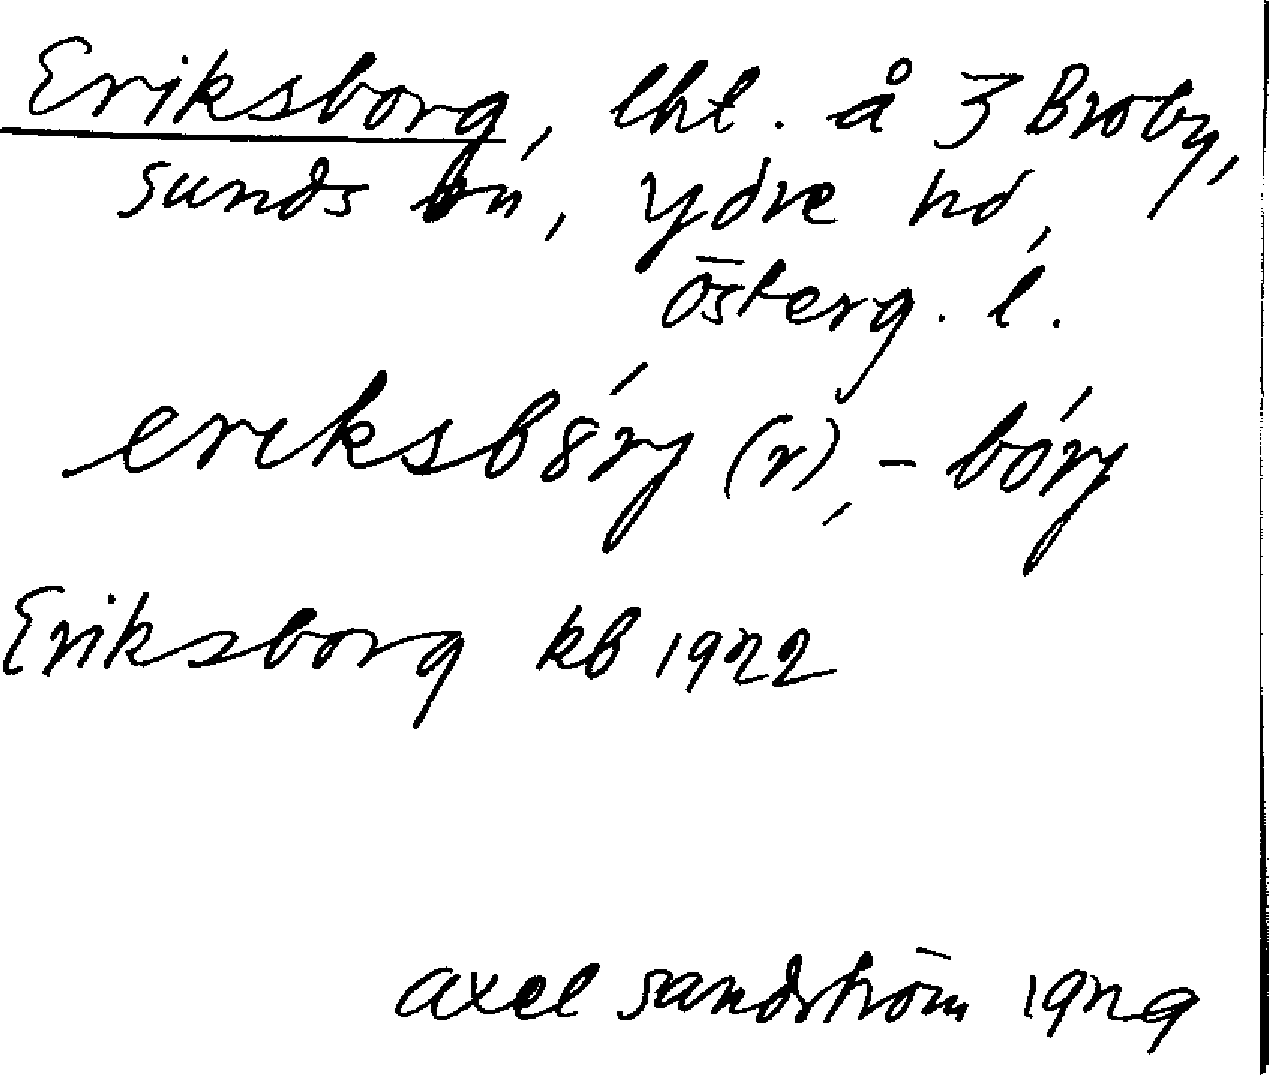 Eriksborg, lht. å 3 Broby,
sunds sn, Ydre hd,
Österg. l.
eriksbórj (r), -bórj
Eriksborg kb 1922
axel sandström 1929